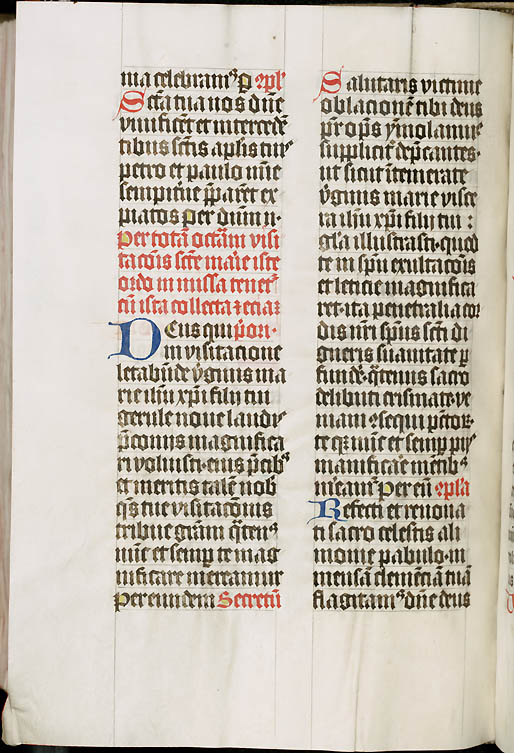 ma celebramꝰ ꝑ ꝯpl'
Scā tua nos dn̄e
viuificēt et intercedē
tibus sctīs apl̓is tuis
petro et paulo nūc
sempitn̄e pp̄arēt ex
piatos per dūm n·
Per totā octām visi
tacōis scte marīe iste
ordo in missa tenet᷑
cū ista collecta ⁊ eciaꝫ
Deus qui p̄ori·
in visitacione
letabūde v̓ginis ma
rie ih̄u xp̄i filii tui
gerule noue laudis
p̄conijs magnifica
ri voluisti·eius p̄cibꝰ
et meritis talē nob̓
qs̄ tue visitacōnis
tribue grām qͣtenꝰ
nūc et semꝑ te mag
nificare mereamur
per eundem Secretū
Salutaris victime
oblacionē tibi deus
pr̄ op̄s ymolamus
suppliciter dep̄cantes·
ut sicut ītemerate
v̓ginis marie visce
ra ih̄u xp̄i filii tui :
gl̓a illustrasti·qued
te in sp̄u exultacōis
et leticie magnifica
ret·ita penetralia cor
dis nr̄i sp̄us sc̄ti di
gneris suauitate ꝑ
fundē·qͣtenus sacro
delibuti crismate·ve
niam ꝯsequi pēcor᷑·
te qꝫ nūc et semꝑ pijs
manificāe meribꝰ
meam᷑ Per eū ꝯpl̓a
Refecti et renoua
ti sacro celestis ali
monie pabulo·in
mensā clemēciā tuā
flagitamꝰ dn̄e deus